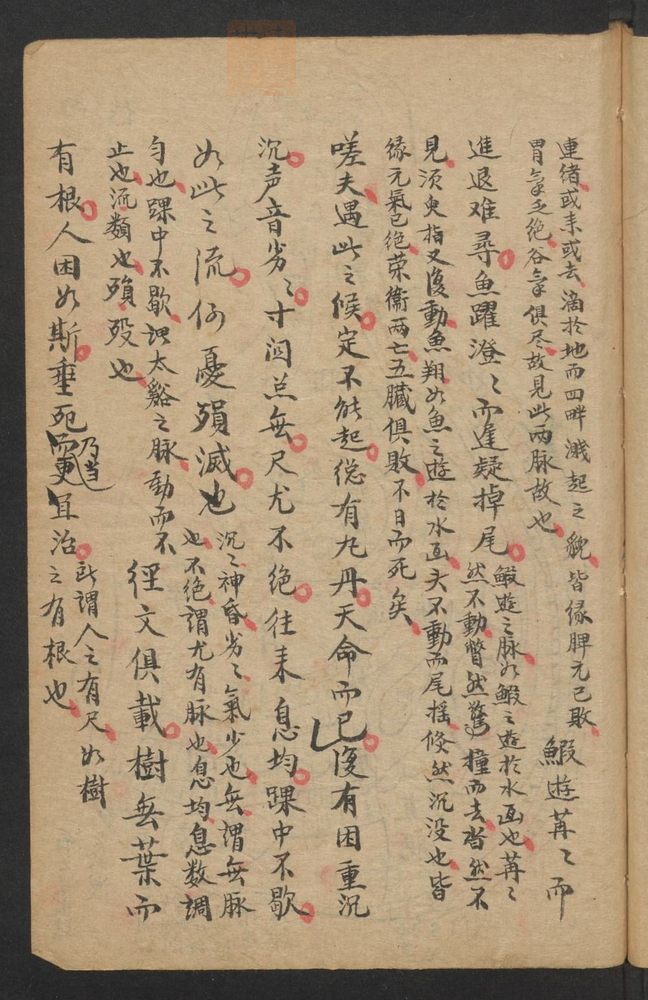 連緒或来或去滴於地而四畔濺起之貌皆缘脾元已敗
胃氣乏绝谷氣俱尽故見此两脉故也
鰕遊苒〻而
進退难尋魚躍澄〻而遲疑掉尾
鰕遊之脉如鰕之遊於水面也苒〻
然不動瞥然驚撞而去沓然不
見须臾指又復動魚翔如魚之遊於水面头不動而尾摇倐然沉没也皆
缘元氣已绝荣衞两亡五臟俱敗不日而死矣
嗟夫遇此之候定不能起縂有九丹天命而已復有困重沉
沉声音劣〻寸関总無尺尤不绝往来息均踝中不歇
如此之流何憂殞滅也
沉〻神昏劣〻氣少也無謂無脉
也不绝謂尤有脉也息均息数調
匀也踝中不歇謂太谿之脉動而不
止也流類也殞殁也
徑文俱載樹無葉而
有根人困如斯垂死而更且治
乃当
所謂人之有尺如樹
之有根也